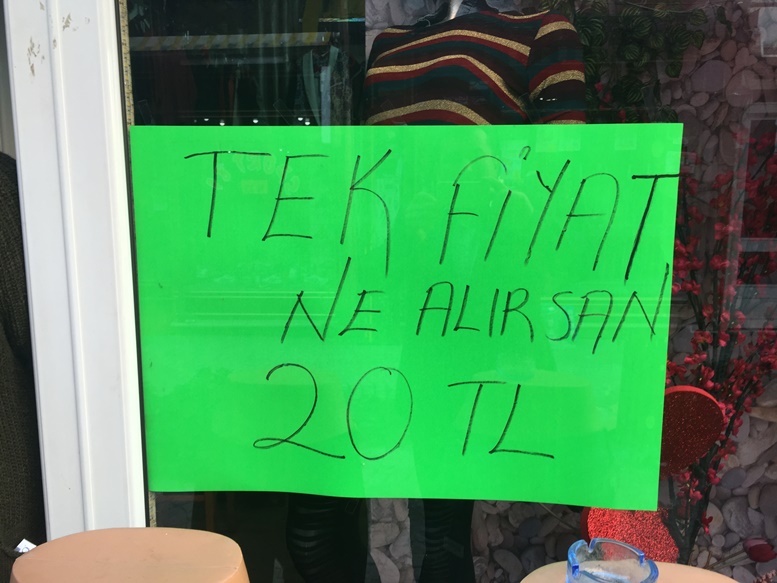 TEK FİYAT
NE ALIRSAN
20 TL